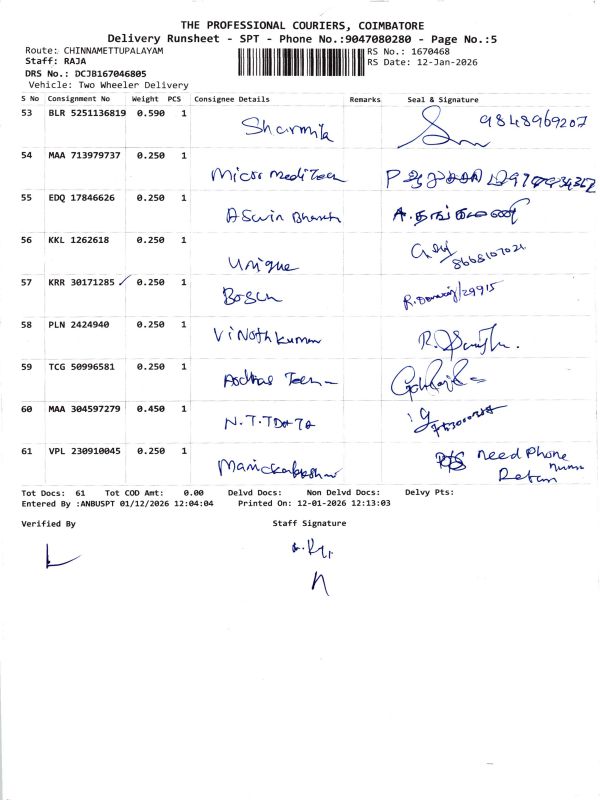 THE PROFESSIONAL COURIERS, COIMBATORE
Delivery Runsheet - SPT - Phone No.:9047080280 - Page No.:5
Route: CHINNAMETTUPALAYAM RS No.: 1670468
Staff: RAJA RS Date: 12-Jan-2026
DRS No.: DCJB167046805
Vehicle: Two Wheeler Delivery
S No Consignment No Weight PCS Consignee Details Remarks Seal & Signature
53 BLR 5251136819 0.590 1 Sharmila 9848969207
54 MAA 713979737 0.250 1 Micor Medi Tech
55 EDQ 17846626 0.250 1 Aswin Bharath
56 KKL 1262618 0.250 1 Unique
57 KRR 30171285 ✓ 0.250 1 Bosch
58 PLN 2424940 0.250 1 Vinoth kumar
59 TCG 50996581 0.250 1
60 MAA 304597279 0.450 1 N.T.T Data
61 VPL 230910045 0.250 1 need Phone
Return
Tot Docs: 61 Tot COD Amt: 0.00 Delvd Docs: Non Delvd Docs: Delvy Pts:
Entered By :ANBUSPT 01/12/2026 12:04:04 Printed On: 12-01-2026 12:13:03
Verified By Staff Signature